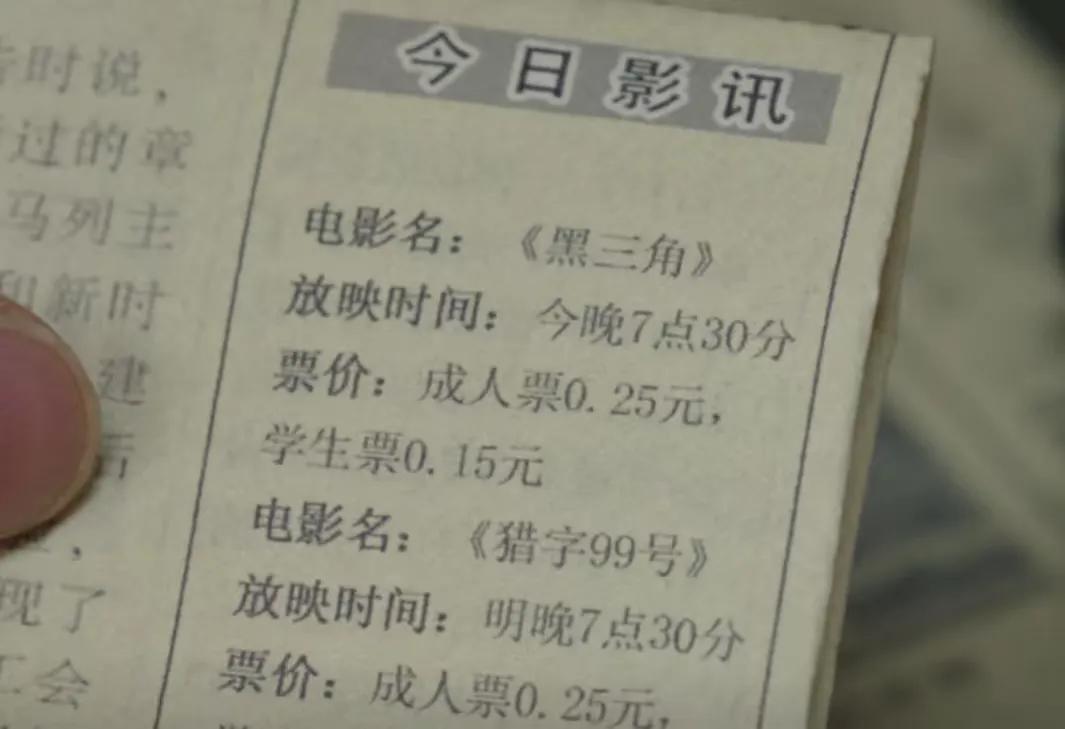 时说，
过的章
马列主
和新时
建
后
，
现了
工会
今日影讯
电影名：《黑三角》
放映时间：今晚7点30分
票价：成人票0.25元，
学生票0.15元
电影名：《猎字99号》
放映时间：明晚7点30分
票价：成人票0.25元，